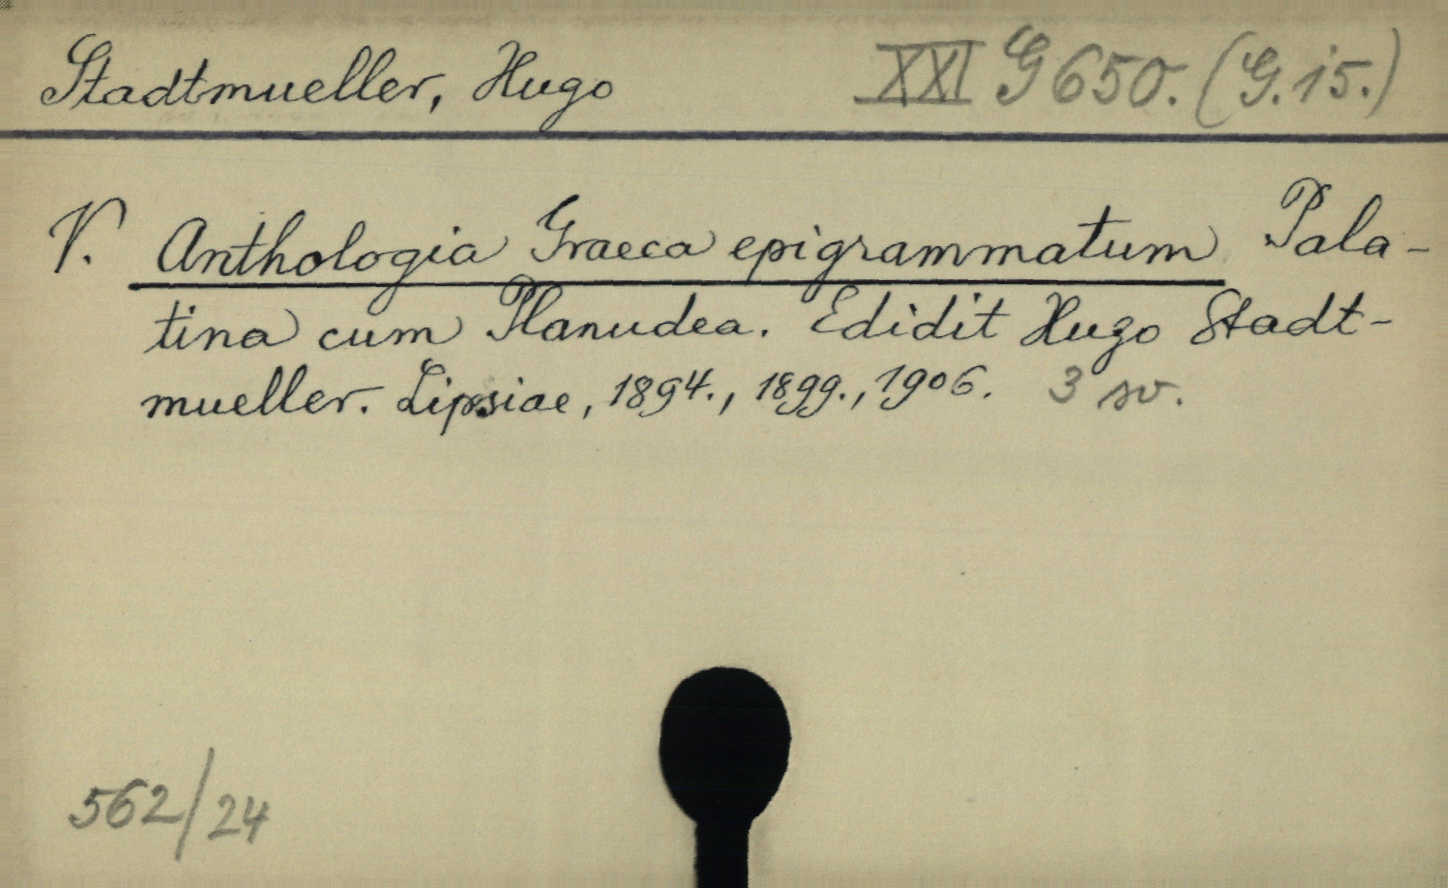 Stadtmueller, Hugo XXI G 650. (G. 15.)
V. Anthologia Graeca epigrammatum Pala-
tina cum Planudea. Edidit Hugo Stadt-
mueller. Lipsiae, 1894., 1899., 1906. 3 sv.
562/24